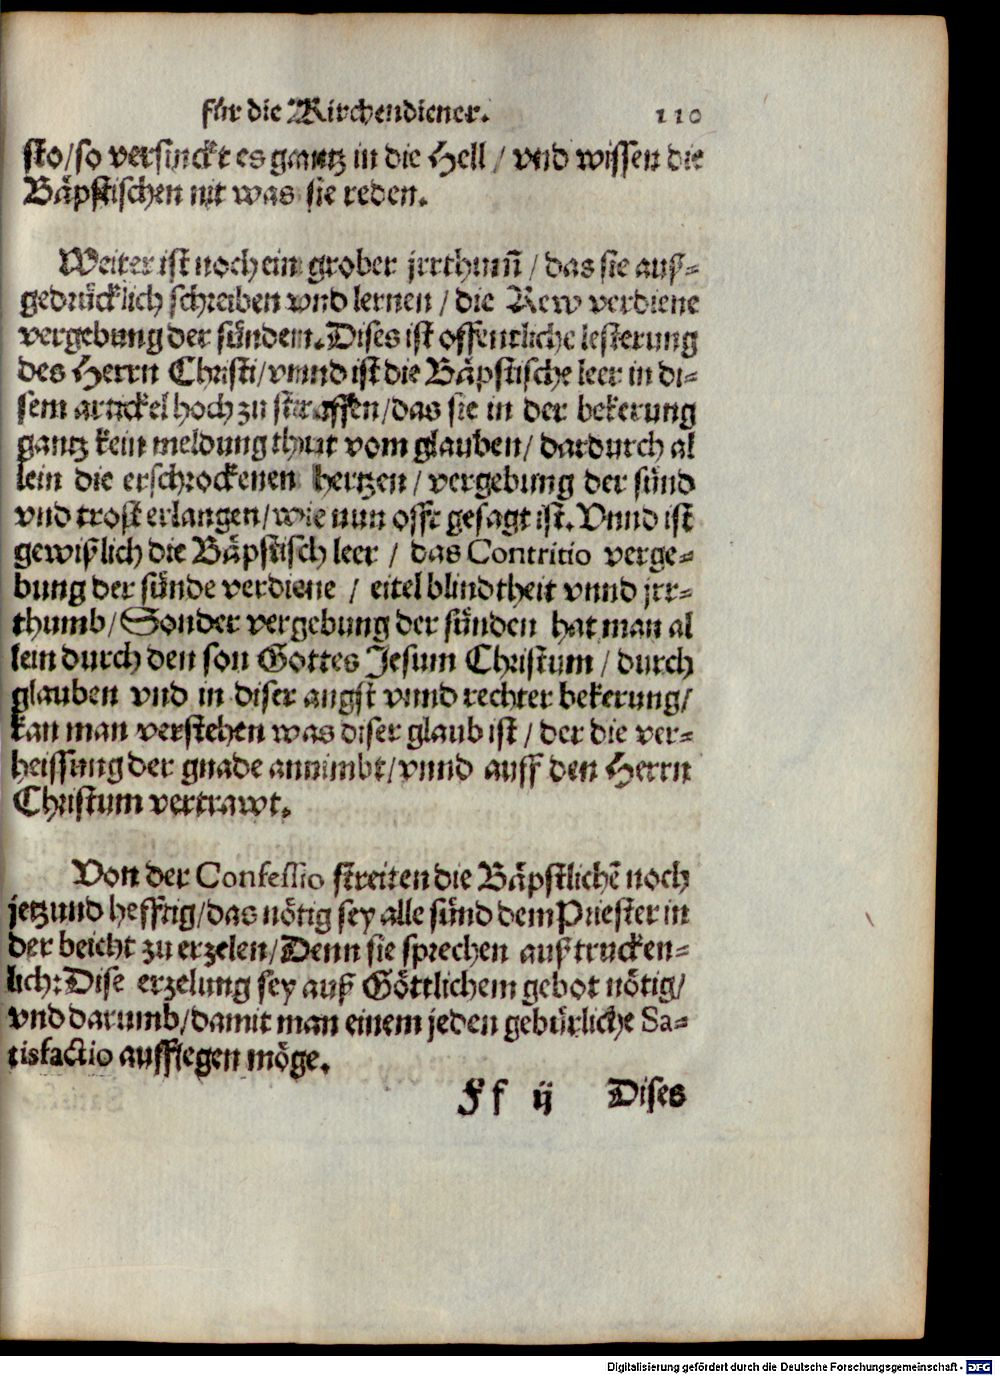 für die Kirchendiener. 110
sto/so versinckt es gantz in die Hell / vnd wissen die
Bäpstischen nit was sie reden.
Weiter ist noch ein grober jrrthum̃ / das sie auß-
gedrücklich schreiben vnd lernen / die Rew verdiene
vergebung der sünden. Dises ist offentliche lesterung
des Herrn Christi/vnnd ist die Bäpstische leer in di-
sem artickel hoch zu straffen/das sie in der bekerung
gantz kein meldung thut vom glauben/ dardurch al
lein die erschrockenen hertzen / vergebung der sünd
vnd trost erlangen/wie nun offt gesagt ist. Vnnd ist
gewißlich die Bäpstisch leer / das Contritio verge-
bung der sünde verdiene / eitel blindtheit vnnd jrr-
thumb/Sonder vergebung der sünden hat man al
lein durch den son Gottes Jesum Christum / durch
glauben vnd in diser angst vnnd rechter bekerung/
kan man verstehen was diser glaub ist / der die ver-
heissung der gnade annimbt/vnnd auff den Herrn
Christum vertrawt.
Von der Confessio streiten die Bäpstlichẽ noch
jetzund hefftig/das nötig sey alle sünd dem Priester in
der beicht zu erzelen/Denn sie sprechen außtrucken-
lich: Dise erzelung sey auß Göttlichem gebot nötig/
vnd darumb/damit man einem jeden gebürliche Sa-
tisfactio aufflegen möge.
Ff ij Dises
Digitalisierung gefördert durch die Deutsche Forschungsgemeinschaft - DFG